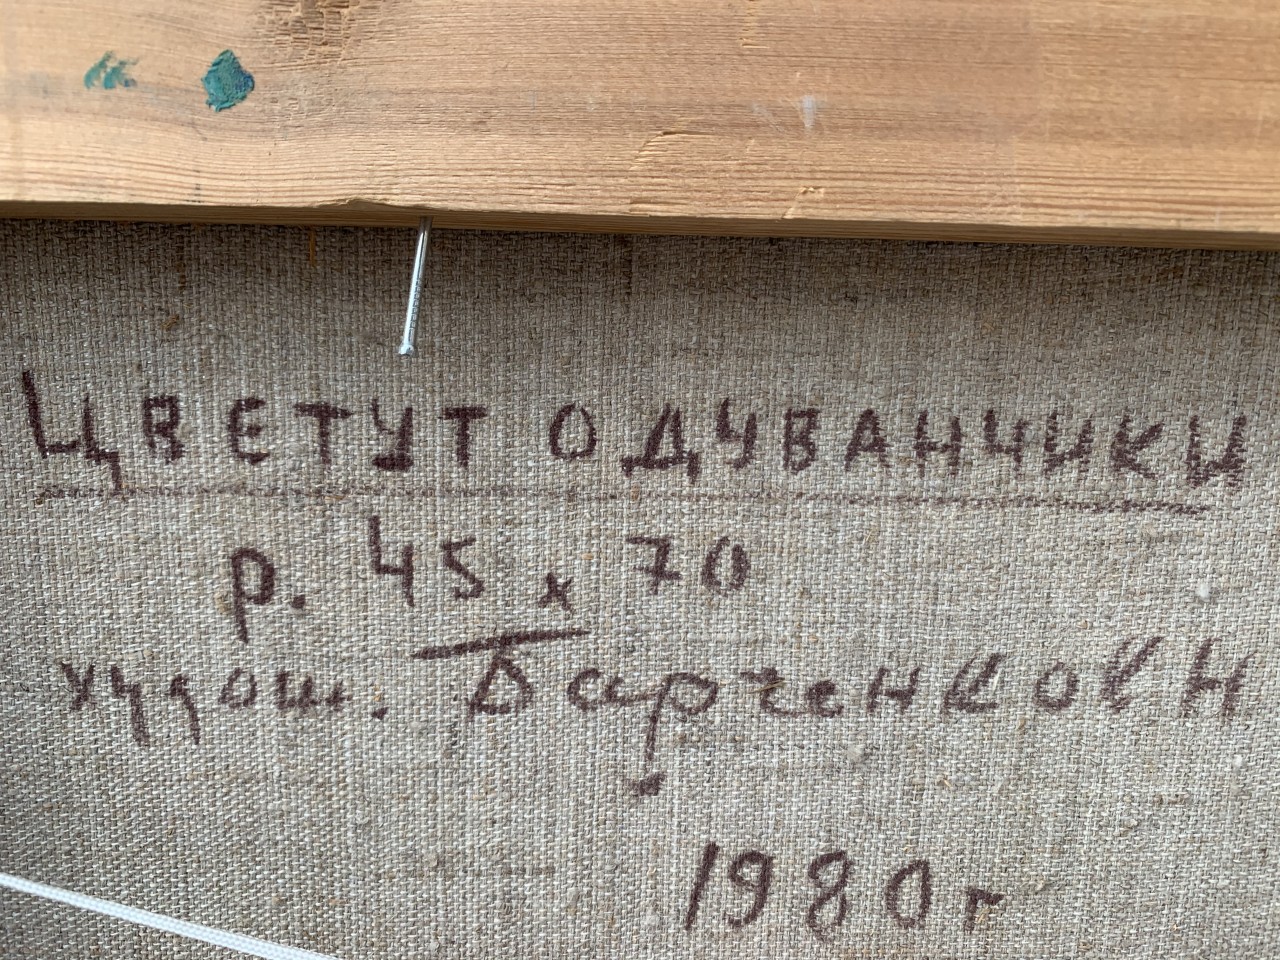 ЦВЕТУТ ОДУВАНЧИКИ
р. 45 х 70
худош. Барченков Н
1980г